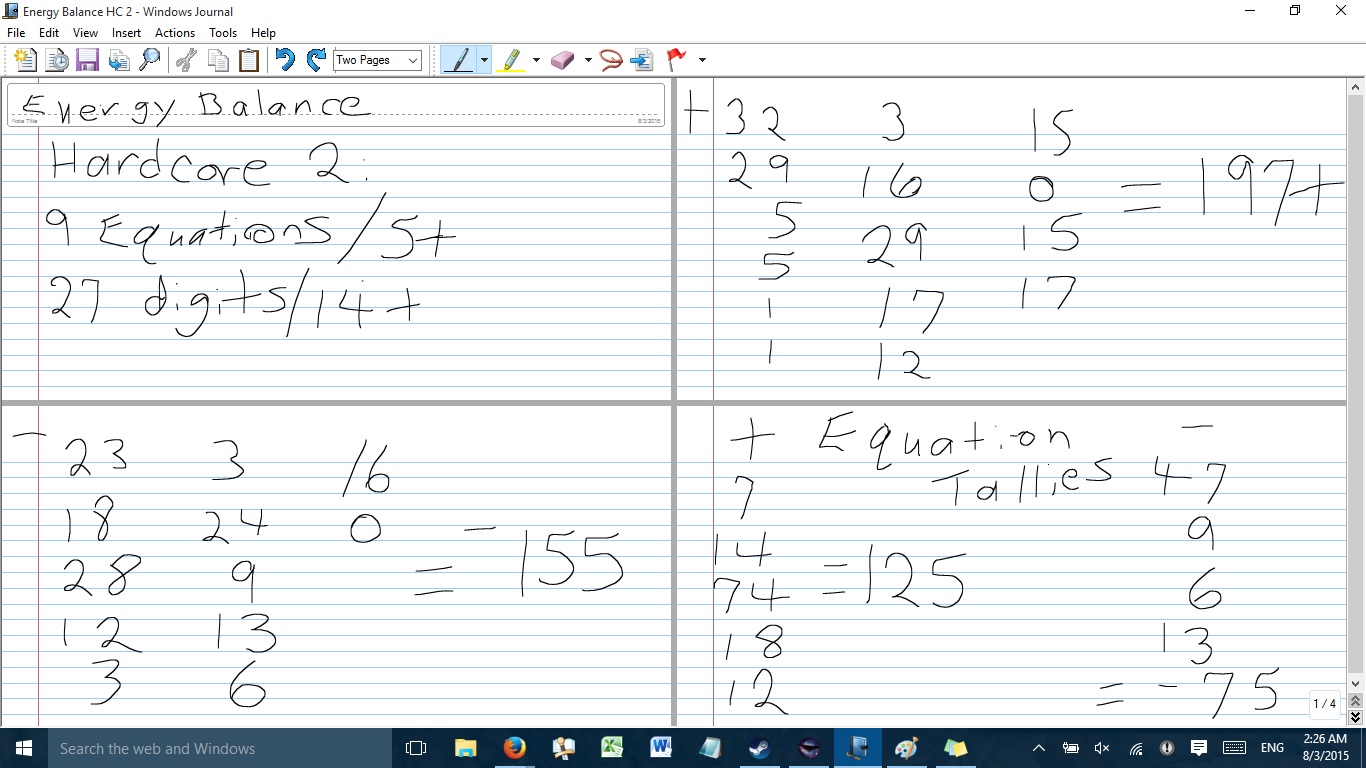 Energy Balance HC 2 - Windows Journal
File Edit View Insert Actions Tools Help
Two Pages
Energy Balance
Note Title 8/3/2015
Hardcore 2:
9 Equations/5+
27 digits/14+
+ 32 3 15
29 16 0 = 197+
5 29 15
5 17 17
1 12
1
- 23 3 16
18 24 0 = -155
28 9
12 13
3 6
+ Equation -
7 Tallies 47
14 9
74 = 125 6
18 13
12 = -75
1 / 4
Search the web and Windows
ENG
2:26 AM
8/3/2015